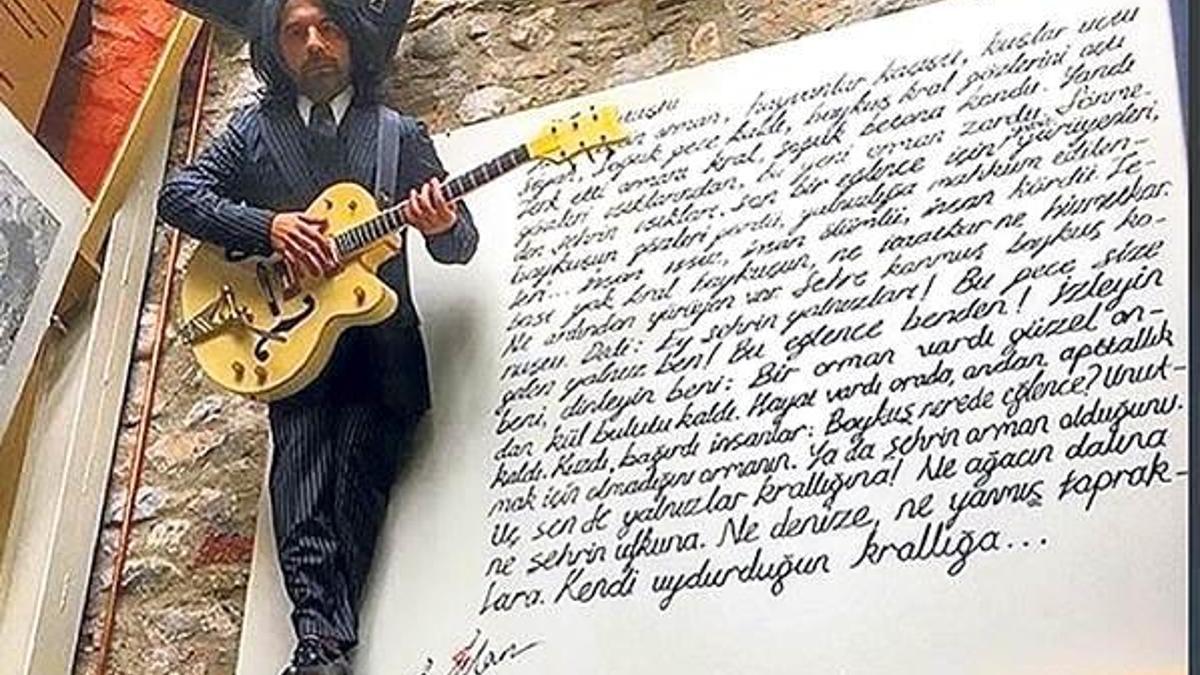 tutuştu
orman, hayvanlar kaçıştı, kuşlar uçtu
soğuk gece bildi, baykuş kral gözlerini açtı
Terk etti ormanı kral, soğuk betona kondu. Yandı
gözleri ışıklarından, bu yeni orman zordu. Sönme-
den şehrin ışıkları, son bir eğlence için yürüyenleri,
baykuşun gözleri gördü, yalnızlığa mahkum edilen-
leri... insan ıssız, insan ölümlü, insan kördü. Te-
bası yok kral baykuşun, ne izcatkar ne hizmetkar.
Ne ardından yürüyen var. Şehre konmuş baykuş ko-
nuştu. Dedi: Ey şehrin yalnızları! Bu gece size
gelen yalnız ben! Bu eğlence benden! İzleyin
beni, dinleyin beni: Bir orman vardı güzel on-
dan kül bulutu kaldı. Hayat vardı orada, ondan apttallık
kaldı. Kızdı, bağırdı insanlar: Baykuş nerede eğlence? Unut-
mak için olmadığını ormanın. Ya da şehrin orman olduğunu.
Uç sen de yalnızlar krallığına! Ne ağacın dalına
ne şehrin ufkuna. Ne denize, ne yanmış toprak-
lara. Kendi uydurduğun krallığa...